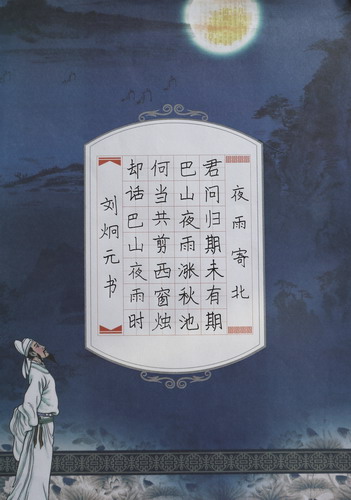 夜雨寄北
君问归期未有期
巴山夜雨涨秋池
何当共剪西窗烛
却话巴山夜雨时
刘炯元书